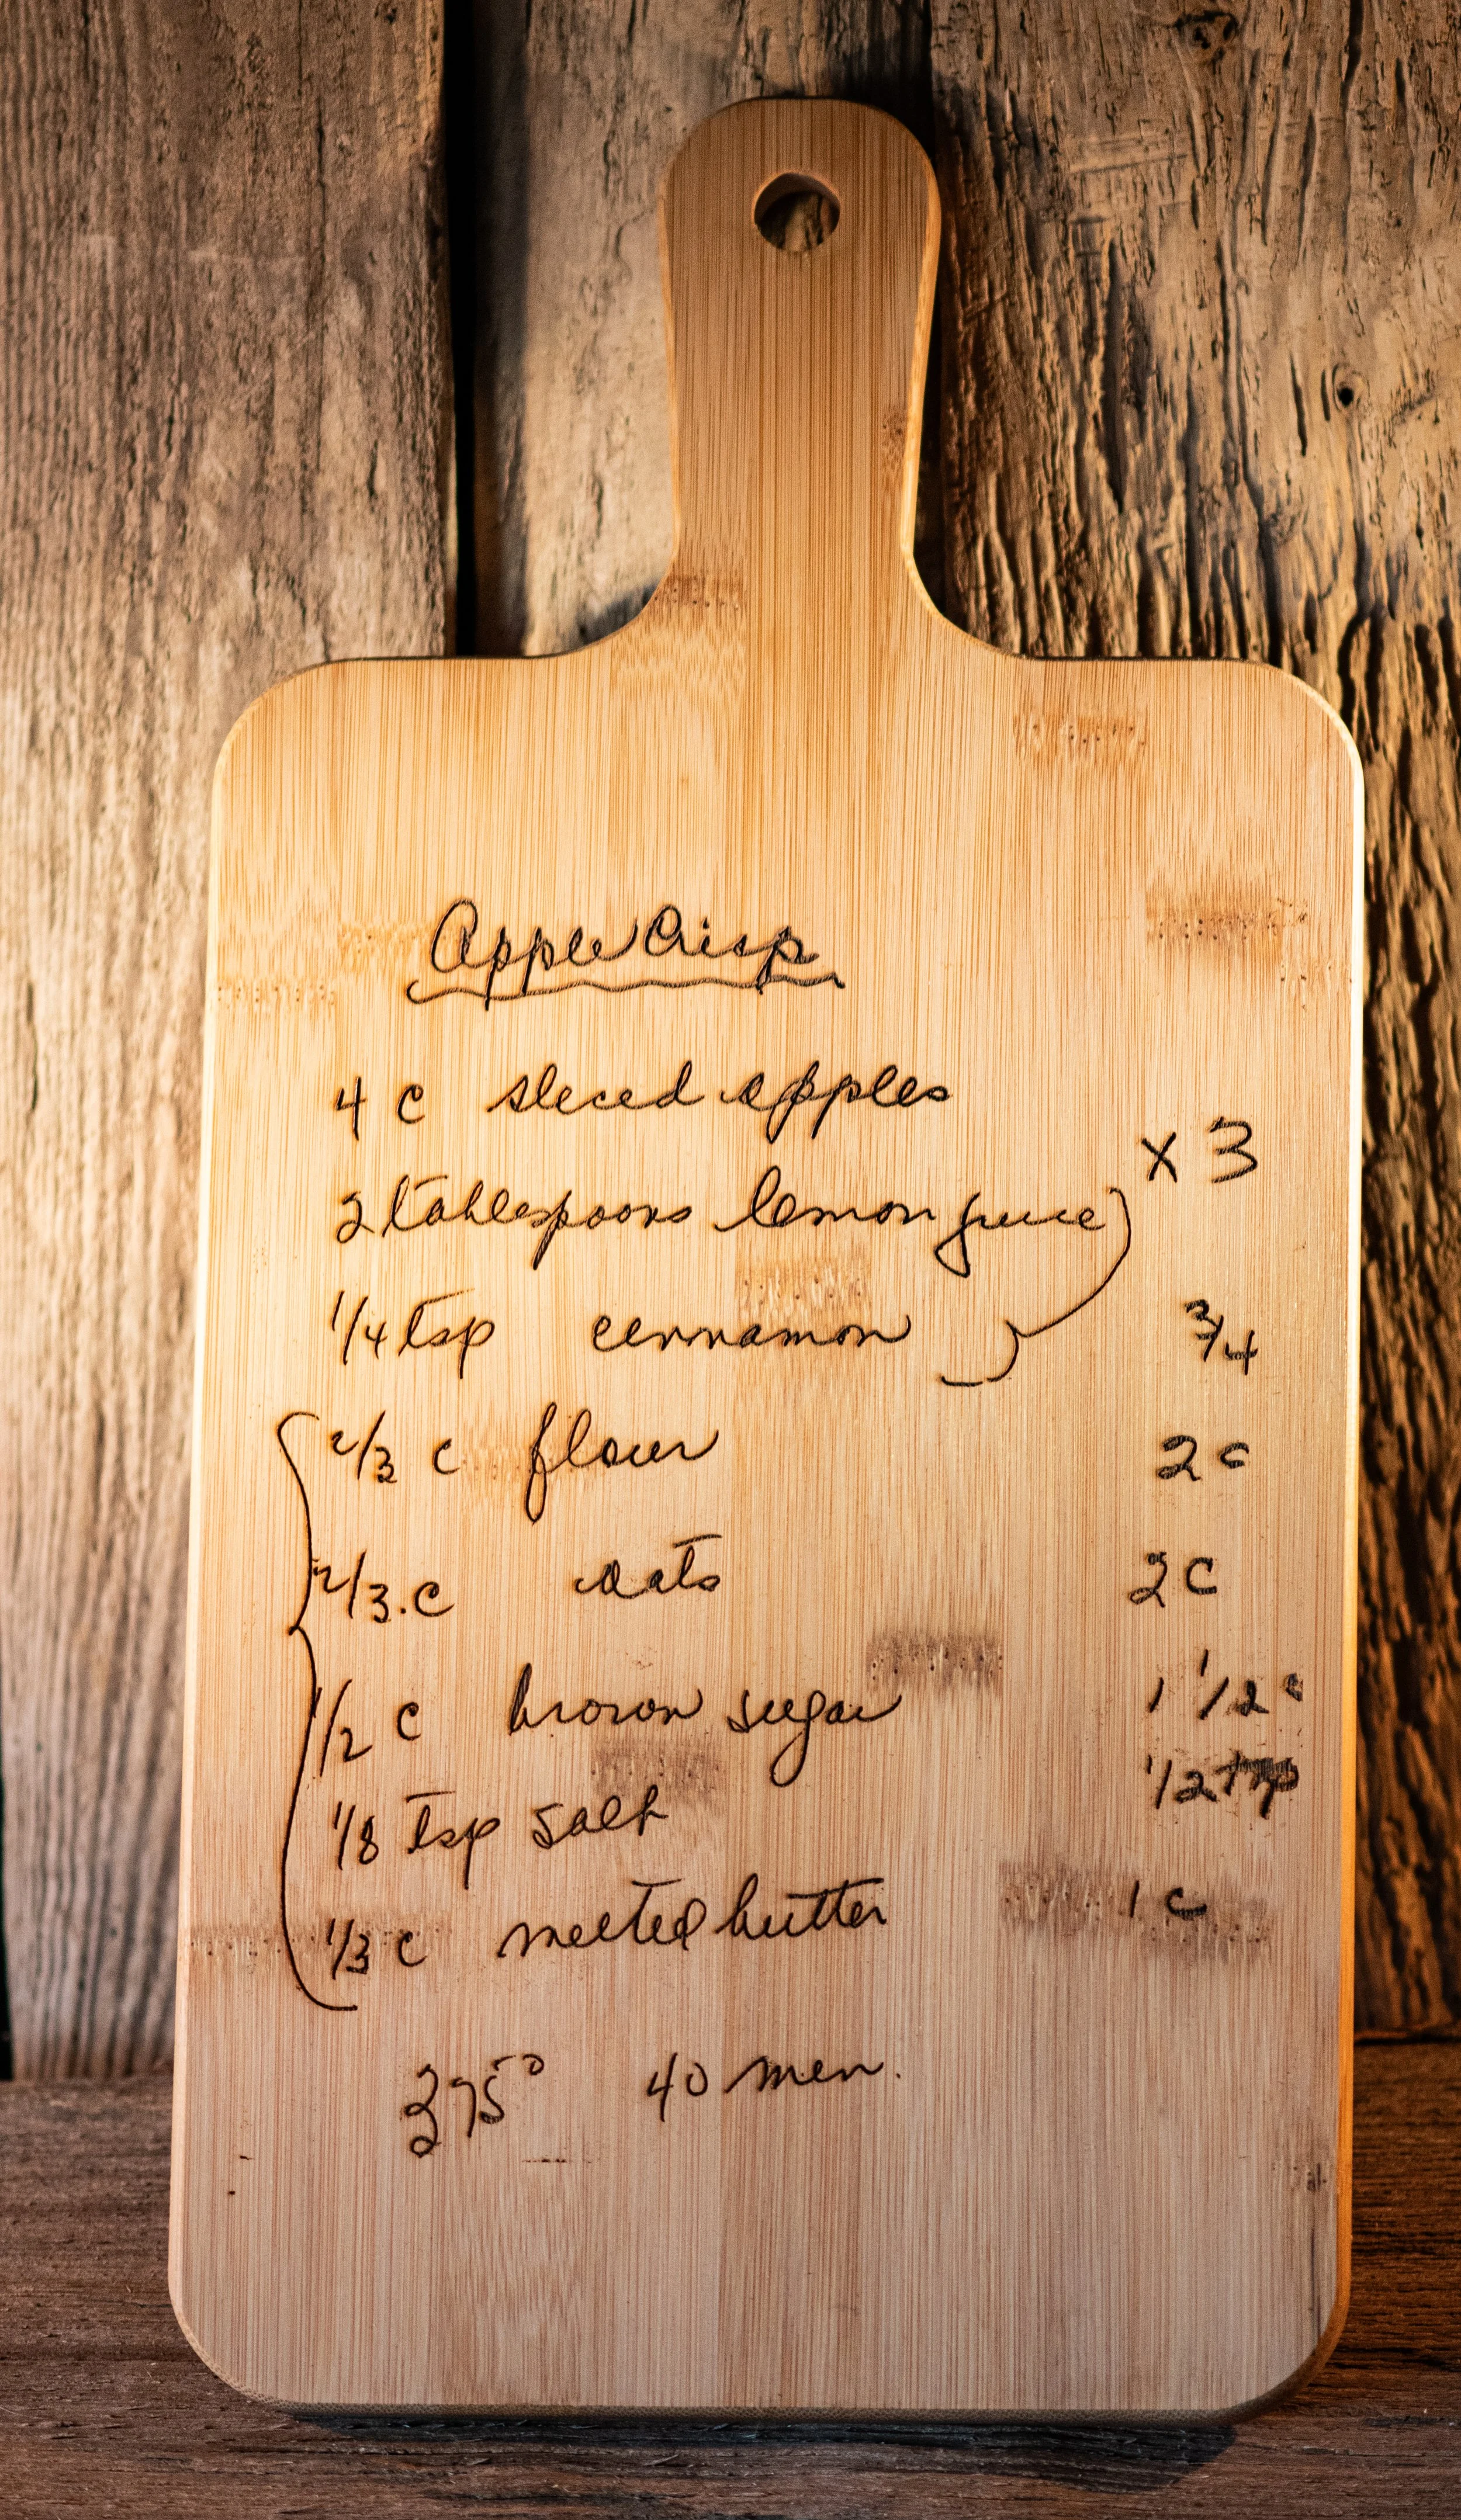 Apple Crisp
4 c sliced apples
x 3
2 tablespoons lemon juice
1/4 tsp cinnamon 3/4
2/3 c flour 2 c
2/3 . c oats 2 c
1/2 c brown sugar 1 1/2 c
1/8 tsp salt 1/2 tsp
1/3 c melted butter 1 c
375° 40 min.